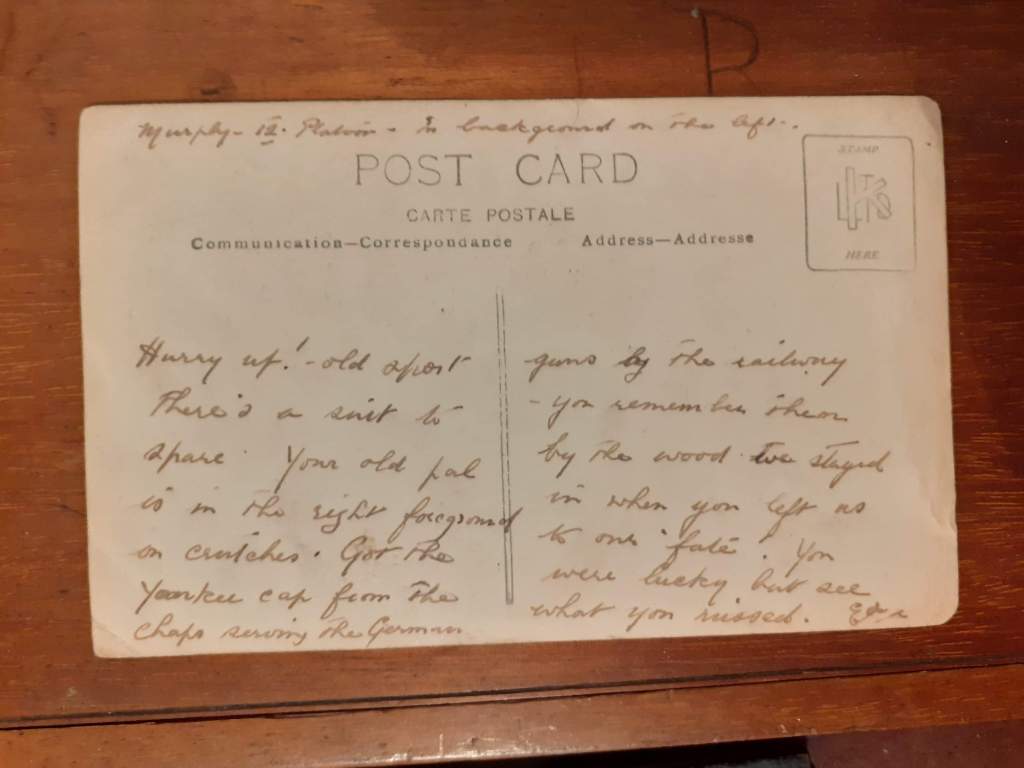 R
Murphy - 12. Platoon - In background on the left.
POST CARD
CARTE POSTALE
Communication—Correspondance
Address—Addresse
STAMP
HERE
Hurry up! - old sport
There's a suit to
spare. Your old pal
is in the right foreground
on crutches. Got the
Yankee cap from the
chaps serving the German
guns by the railway
- you remember them
by the wood we stayed
in when you left us
to our 'fate'. You
were lucky but see
what you missed.